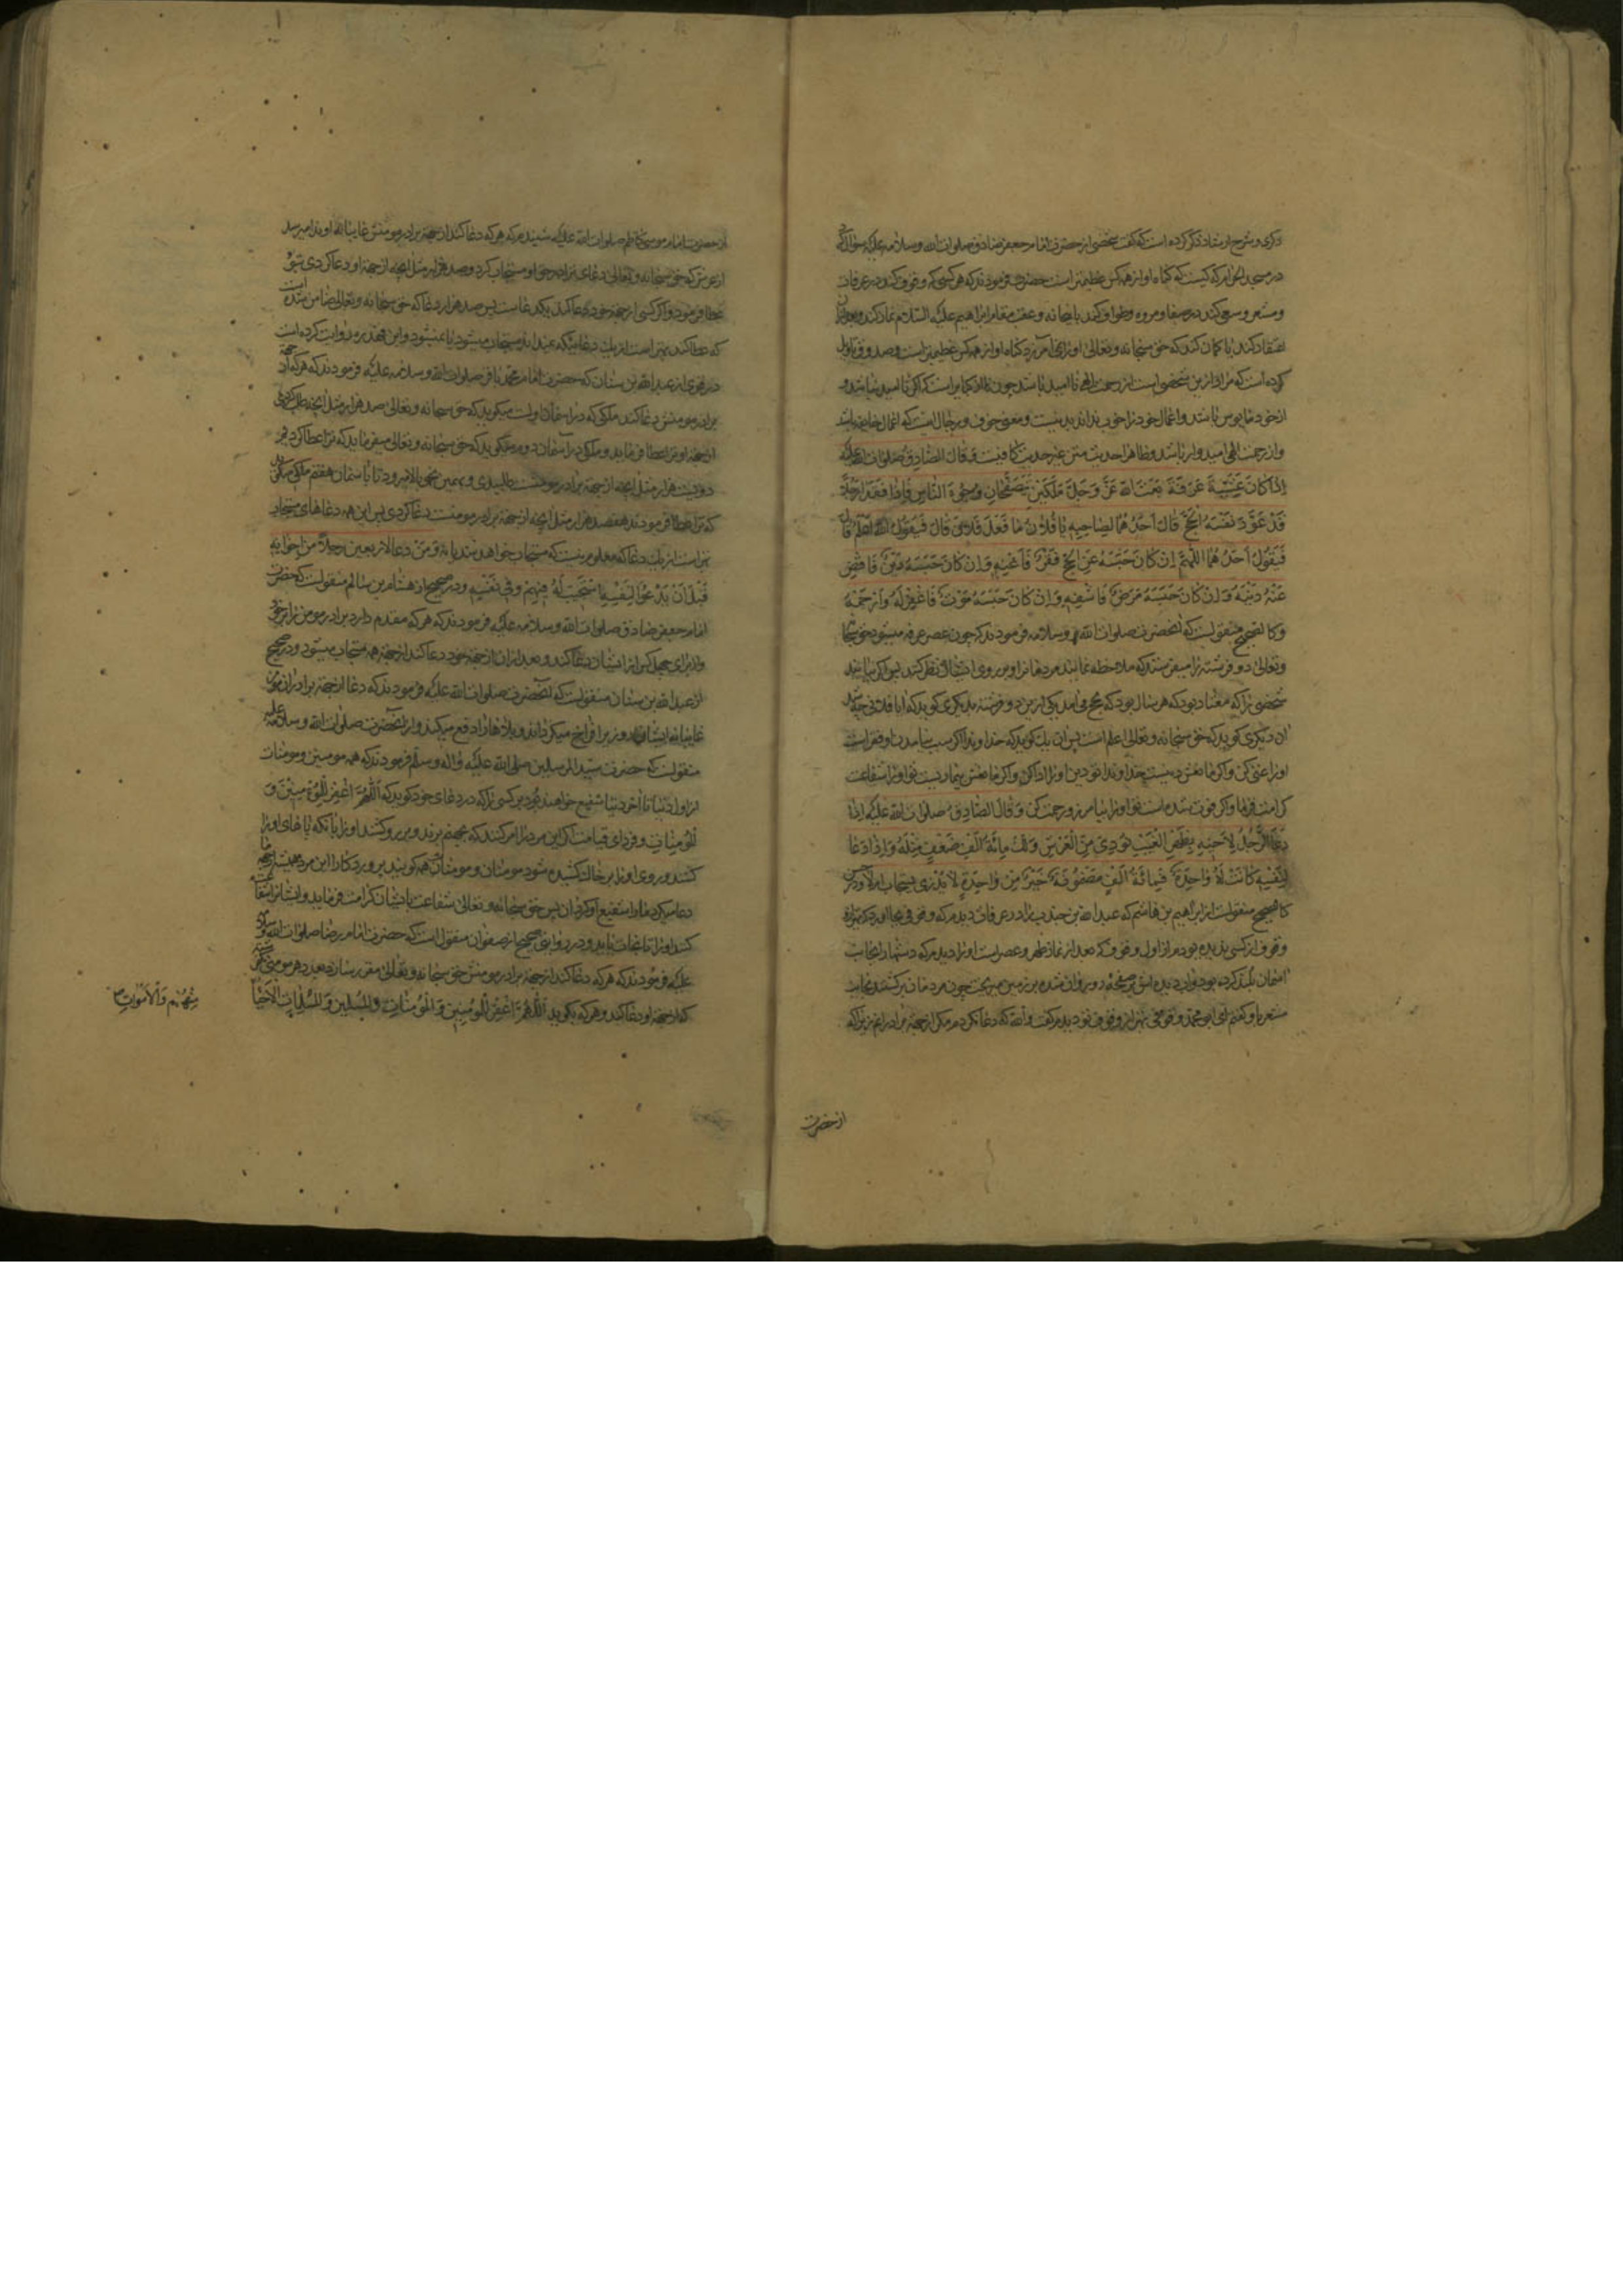 ذکری و شرح ارشاد ذکر کرده است که گفت شخصی از حضرت امام جعفر صادق صلوات الله و سلامه علیه سؤال کرد
در مسجد الحرام که کیست که گناه او از همه کس عظیمتر است حضرت فرمودند که هر کسی که وقوف کند در عرفات
و مشعر و سعی کند در صفا و مروه و طواف کند باینخانه و عقب مقام ابراهیم علیه السلام نماز کند و بعد ازان
اعتقاد کند یا گمان کند که حق سبحانه و تعالی او را نمی آمرزد گناه او از همه کس عظیمتر است و صدوق تاویل
کرده است که مراد ازین شخصی است از رحمت الهی نا امید باشد چون ظاهر است که اگر نا امید نباشد و
از خود مایوس باشد و اعمال خود را خوب نداند بد نیست و معنی خوف و رجا این است که از اعمال خایف باشد
و از رحمت الهی امیدوار باشد و ظاهرا حدیث متن غیر حدیث کافیست وَقَالَ الصَّادِقُ صَلَوَاتُ اللهِ عَلَیْهِ
اِذَا کَانَ عَشِیَّةُ عَرَفَةَ بَعَثَ اللهُ عَزَّ وَجَلَّ مَلَکَیْنِ یَتَصَفَّحَانِ وُجُوهَ النَّاسِ فَاِذَا فَقَدَا رَجُلاً
قَدْ عَوَّدَ نَفْسَهُ الْحَجَّ قَالَ اَحَدُهُمَا لِصَاحِبِهِ یَا فُلَانُ مَا فَعَلَ فُلَانٌ قَالَ فَیَقُولُ اللهُ اَعْلَمُ قَالَ
فَیَقُولُ اَحَدُهُمَا اللّٰهُمَّ اِنْ کَانَ حَبَسَهُ عَنِ الْحَجِّ فَقْرٌ فَاَغْنِهِ وَاِنْ کَانَ حَبَسَهُ دَیْنٌ فَاقْضِ
عَنْهُ دَیْنَهُ وَاِنْ کَانَ حَبَسَهُ مَرَضٌ فَاشْفِهِ وَاِنْ کَانَ حَبَسَهُ مَوْتٌ فَاغْفِرْ لَهُ وَارْحَمْهُ
و کالصحیح منقولست که آنحضرت صلوات الله و سلامه فرمودند که چون عصر عرفه میشود حق سبحانه
و تعالی دو فرشته را میفرستد که ملاحظه نمایند مردمانرا و بر روی ایشان نظر کنند پس اگر نیابند
شخصی را که معتاد بود که هر سال بود که بحج می آمد یکی ازین دو فرشته بدیگری گوید که ایا فلانی چه شد
آن دیگری گوید که حق سبحانه و تعالی اعلم است پس آن یک گوید که خداوندا اگر سبب نیامدن او فقر است
او را غنی کن و اگر مانعش دینیست خداوندا تو دین او را ادا کن و اگر مانعش بیماریست تو او را شفا
کرامت فرما و اگر فوت شده است تو او را بیامرز و رحمت کن وَقَالَ الصَّادِقُ صلوات الله علیه اِذَا
دَعَا الرَّجُلُ لِاَخِیهِ بِظَهْرِ الْغَیْبِ نُودِیَ مِنَ الْعَرْشِ وَلَکَ مِائَةُ اَلْفِ ضِعْفٍ مِثْلَهُ وَاِذَا دَعَا
لِنَفْسِهِ کَانَتْ لَهُ وَاحِدَةٌ فَمِائَةُ اَلْفٍ مَضْمُونَةٌ خَیْرٌ مِنْ وَاحِدَةٍ لَا یَدْرِی یُسْتَجَابُ اَمْ لَا و در حسن
کالصحیح منقولست از ابراهیم بن هاشم که عبد الله بن جندب را در عرفات دیدم که وقوفی بجا آورد که بهتر از
وقوف از کسی ندیده بودم از اول وقوف که بعد از نماز ظهر و عصر است او را دیدم که دستها را بجانب
آسمان بلند کرده بود و آب دیده اش بر صفحه رو روان شده بر زمین میریخت چون مردمان برگشتند بجانب
مشعر باو گفتم ای ابو محمد وقوفی بهتر از وقوف تو ندیدم گفت والله که دعا نکردم مگر از جهة برادرانم زیرا که
از حضرت
از حضرت امام موسی کاظم صلوات الله علیه شنیدم که هر که دعا کند از جهة برادر مومنش غایبانه او را ندا میرسد
از عرش که حق سبحانه و تعالی دعای ترا در حق او مستجاب کرد و صد هزار مثل آنچه از جهة او دعا کردی بتو
عطا فرمود و اگر کسی از جهة خود دعا کند یک دعاست پس صد هزار دعا که حق سبحانه و تعالی ضامن شده است
که عطا کند بهتر است از یک دعائیکه نمیداند مستجاب میشود یا نمیشود و ابن فهد ره روایت کرده است
در قوی از عبد الله بن سنان که حضرت امام محمد باقر صلوات الله و سلامه علیه فرمودند که هر که از جهة
برادر مومنش دعا کند ملکی که در آسمان اولست میگوید که حق سبحانه و تعالی صد هزار مثل آنچه طلب کردی
از جهة او ترا عطا فرماید و ملکی در آسمان دویم میگوید که حق سبحانه و تعالی میفرماید که ترا عطا کردیم
دویست هزار مثل آنچه از جهة برادر مومنت طلبیدی و بهمین نحو بالا میرود تا بآسمان هفتم ملکی میگوید
که ترا عطا فرمودند هفصد هزار مثل آنچه از جهة برادر مومنت دعا کردی پس این همه دعاهای مستجاب
بهتر است از یک دعا که معلوم نیست که مستجاب خواهد شد یا نه وَمَنْ دَعَا لِاَرْبَعِینَ رَجُلاً مِنْ اِخْوَانِهِ
قَبْلَ اَنْ یَدْعُوَ لِنَفْسِهِ اسْتُجِیبَ لَهُ فِیهِمْ وَفِی نَفْسِهِ و در صحیح از هشام بن سالم منقولست که حضرت
امام جعفر صادق صلوات الله و سلامه علیه فرمودند که هر که مقدم دارد برادر مومن را بر خود
و از برای چهل کس از ایشان دعا کند و بعد ازان از جهة خود دعا کند از جهة همه مستجاب میشود و در صحیح
از عبد الله بن سنان منقولست که آنحضرت صلوات الله علیه فرمودند که دعا از جهة برادران مومن
غایبانه ایشان روزی را فراخ میگرداند و بلاها را دفع میکند و از آنحضرت صلوات الله و سلامه علیه
منقولست که حضرت سید المرسلین صلی الله علیه و اله و سلم فرمودند که همه مومنین و مومنات
از اول دنیا تا آخر دنیا شفیع خواهند بود بر کسی را که در دعای خود گوید که اَللّٰهُمَّ اغْفِرْ لِلْمُؤْمِنِینَ وَ
لْمُؤْمِنَاتِ و فردای قیامت اگر این مرد را امر کنند که بجهنم برند و بر رو کشند او را بآنکه پاهای او را
کشند و روی او را بر خاک کشیده شود مومنان و مومنات همه گویند پروردگارا این مرد همیشه از جهة ما
دعا میکرد ما را شفیع او گردان پس حق سبحانه و تعالی شفاعت بایشان کرامت فرماید و ایشان شفاعت
کنند او را تا نجات یابد و در روایتی صحیح از صفوان منقول است که حضرت امام رضا صلوات الله و سلامه
علیه فرمودند که هر که دعا کند از جهة برادر مومنش حق سبحانه و تعالی مقرر سازد بعدد هر مومنی
که از جهة او دعا کند و هر که بگوید اَللّٰهُمَّ اغْفِرْ لِلْمُؤْمِنِینَ وَالْمُؤْمِنَاتِ وَالْمُسْلِمِینَ وَالْمُسْلِمَاتِ الْاَحْیَاءِ
مِنْهُمْ وَالْاَمْوَاتِ